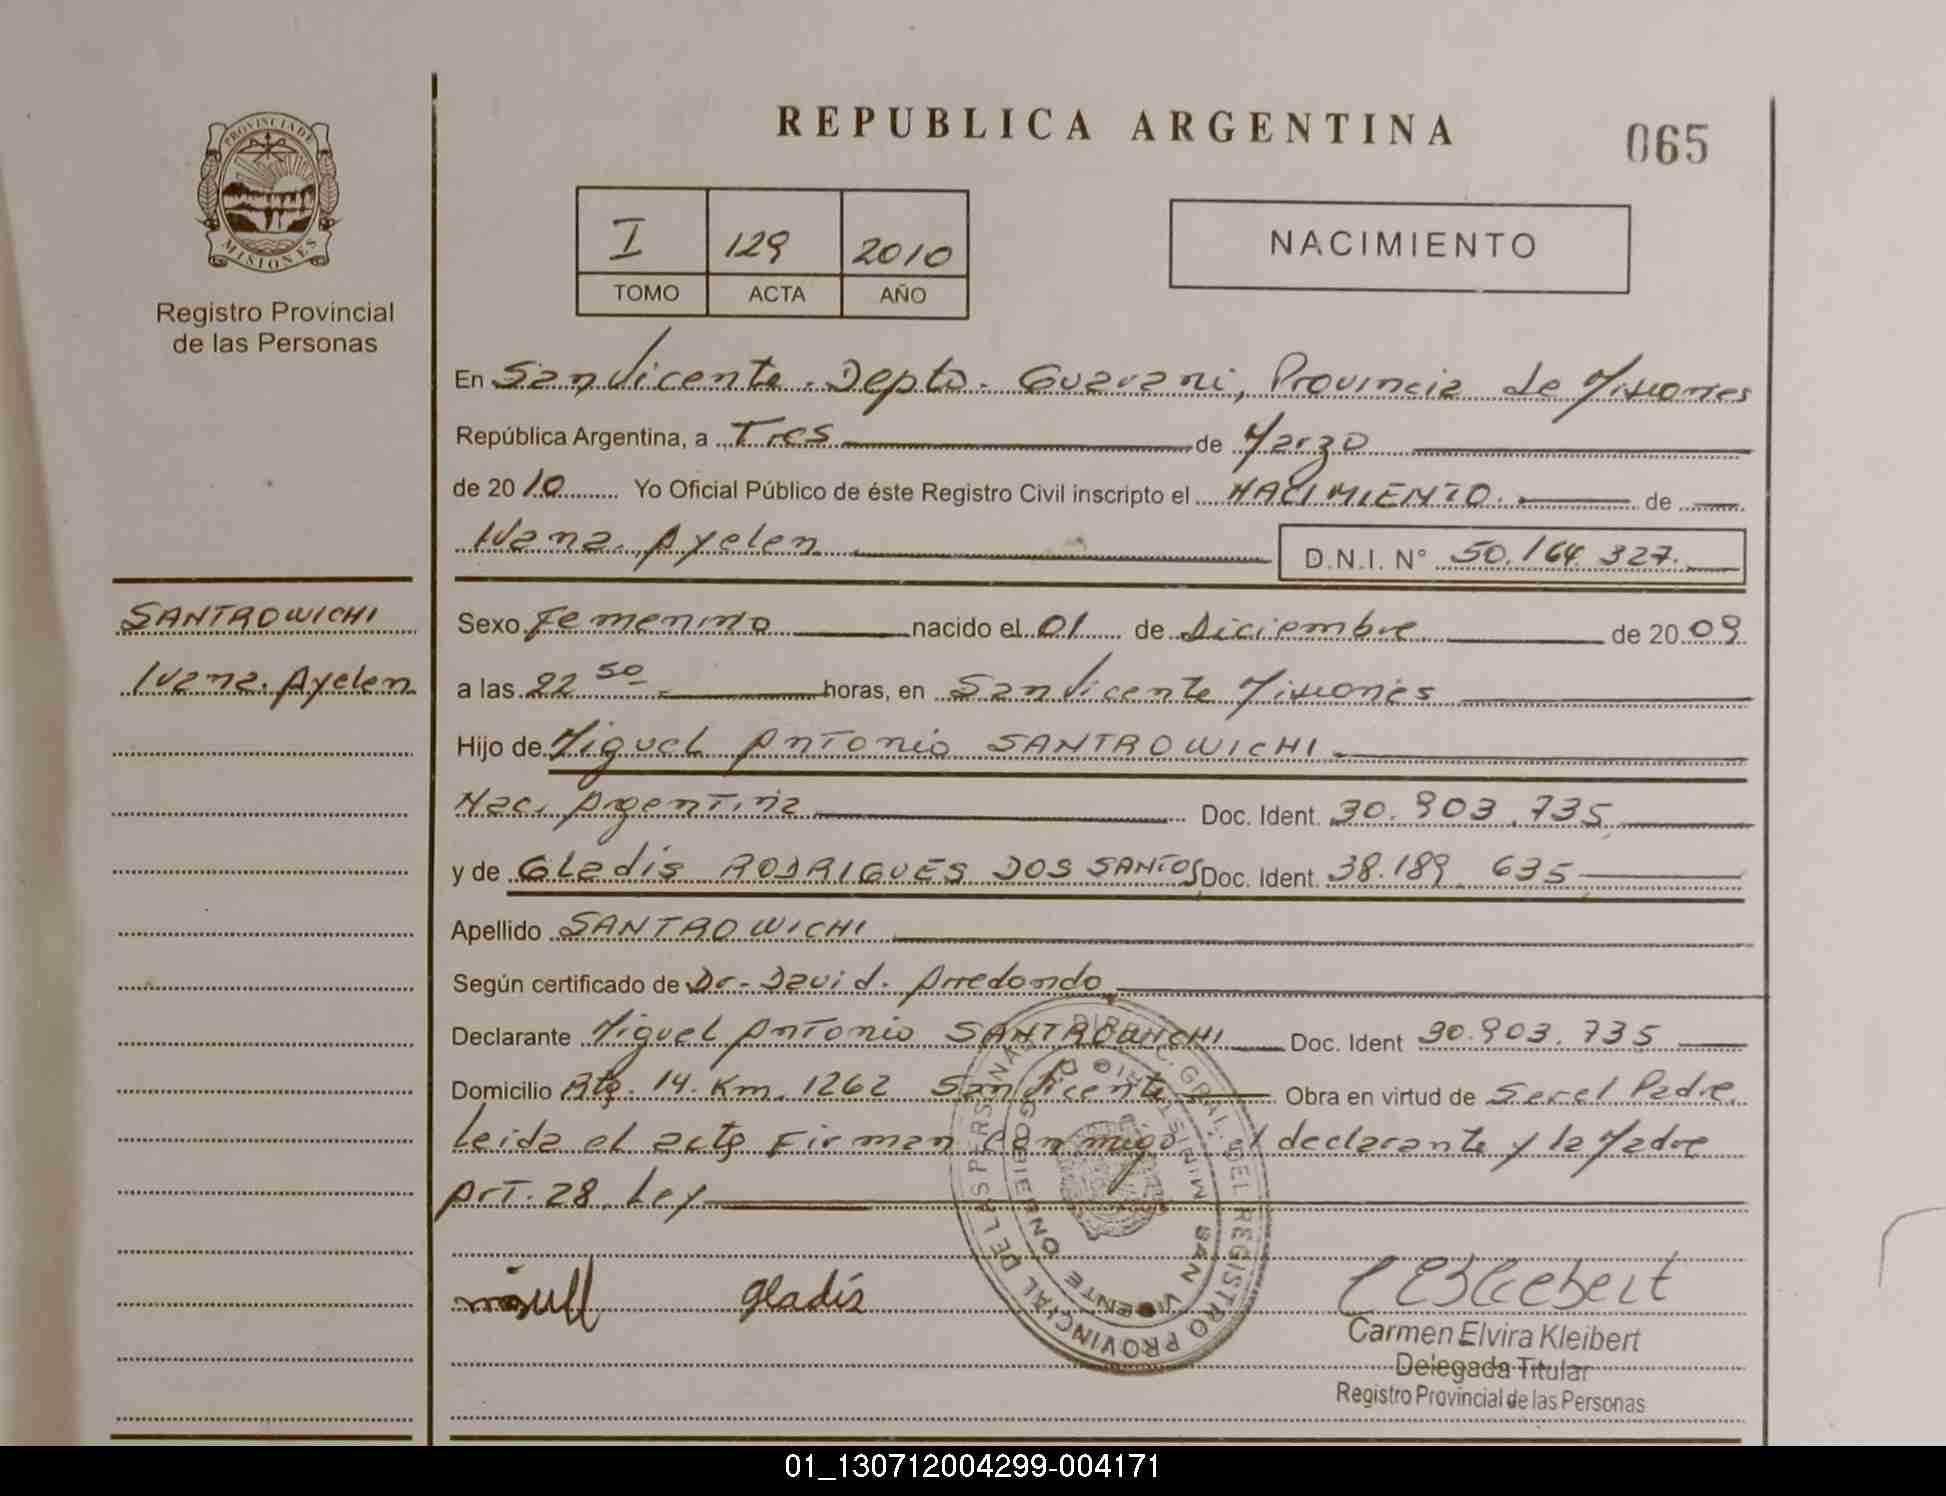 REPUBLICA ARGENTINA
065
PROVINCIA DE
MISIONES
Registro Provincial
de las Personas
I 129 2010
TOMO ACTA AÑO
NACIMIENTO
En San Vicente. Depto. Guarani, Provincia de Misiones
República Argentina, a Tres de Marzo
de 2010 Yo Oficial Público de éste Registro Civil inscripto el NACIMIENTO. de
Ivana. Ayelen D.N.I. N° 50.164.327.
SANTROWICHI
Ivana. Ayelen
Sexo Femenino nacido el 01 de Diciembre de 2009
a las 22 50 horas, en San Vicente Misiones
Hijo de Miguel Antonio SANTROWICHI
Nac. Argentina Doc. Ident. 30.903.735
y de Gladis RODRIGUES DOS SANTOS Doc. Ident. 38.189.635
Apellido SANTROWICHI
Según certificado de Dr. David. Arredondo
Declarante Miguel Antonio SANTROWICHI Doc. Ident 30.903.735
Domicilio Rta. 14. Km. 1262 San Vicente Obra en virtud de Ser el Padre
Leida el acta Firman conmigo el declarante y la Madre
Art. 28. Ley
gladis
DIREC. GRAL. DEL REGISTRO PROVINCIAL DE LAS PERSONAS
MINISTERIO DE GOBIERNO
SAN VICENTE
CEKleibert
Carmen Elvira Kleibert
Delegada Titular
Registro Provincial de las Personas
01_130712004299-004171